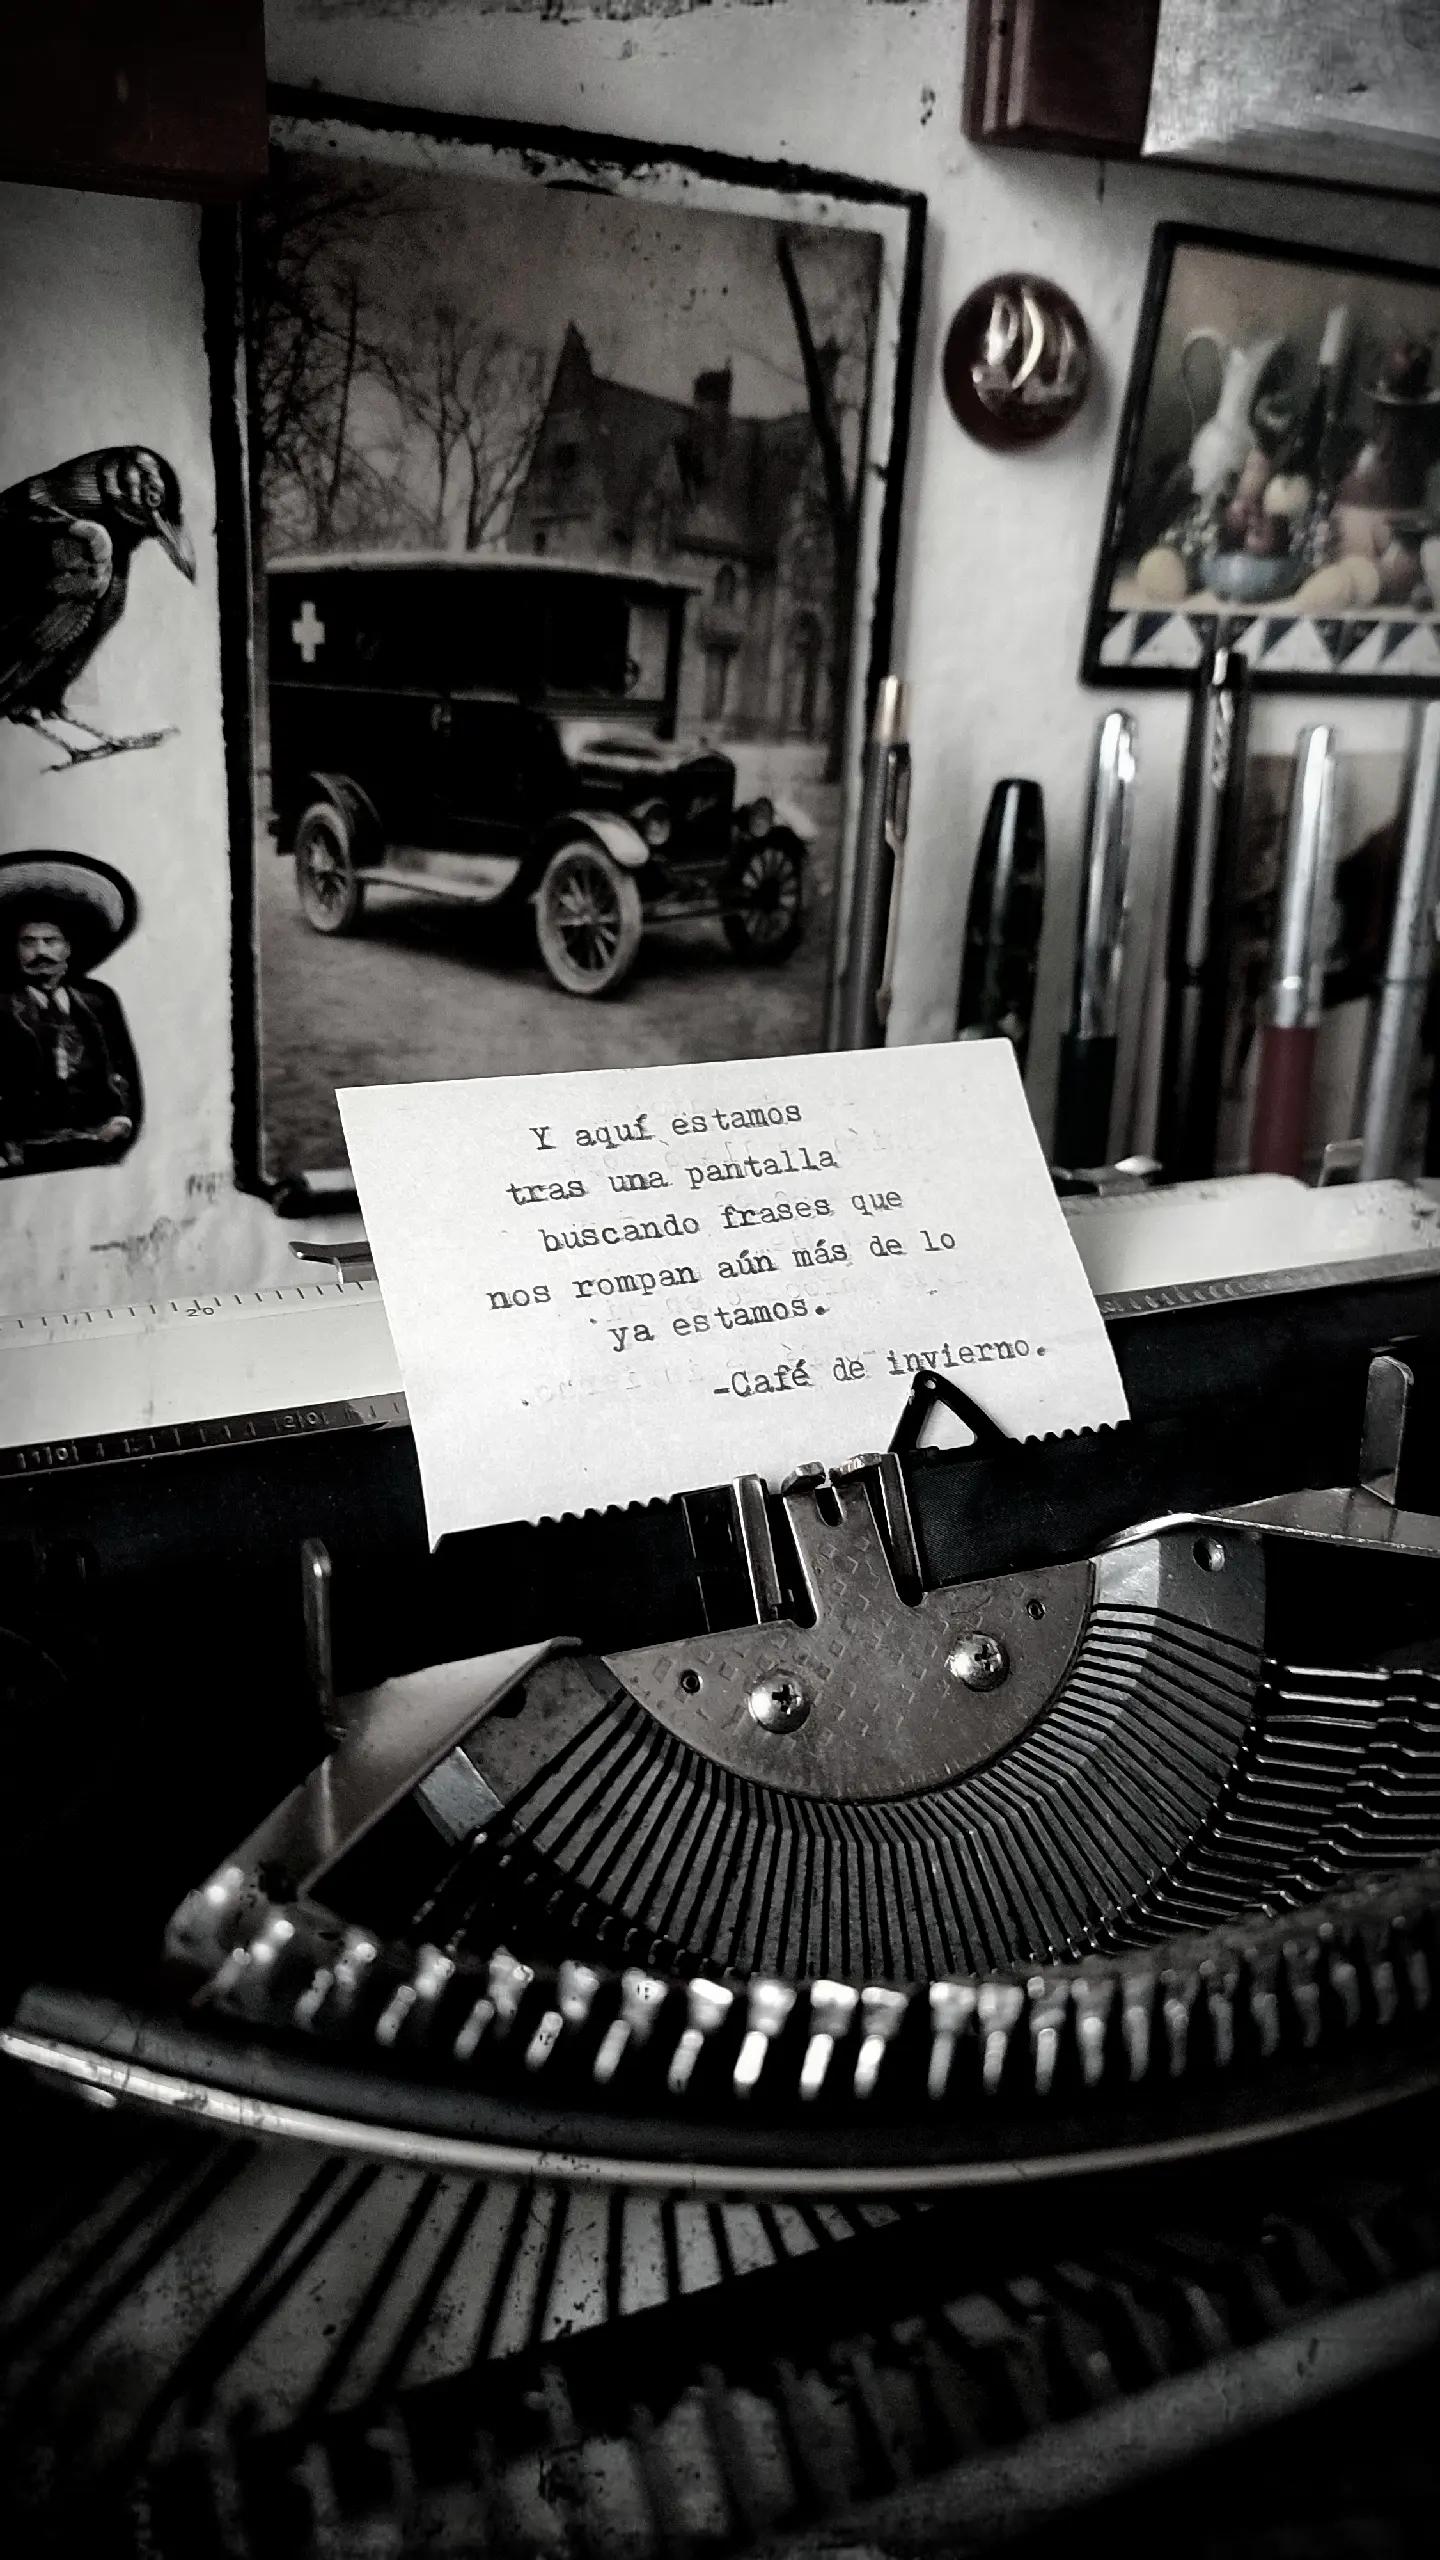 Y aquí estamos
tras una pantalla
buscando frases que
nos rompan aún más de lo
ya estamos.
-Café de invierno.
20